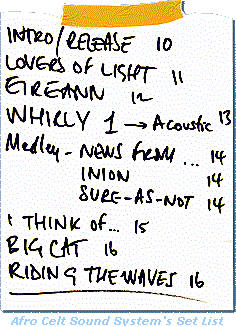 INTRO/RELEASE 10
LOVERS OF LIGHT 11
EIREANN 12
WHIRLY 1 → Acoustic 13
Medley - NEWS FROM ... 14
INION 14
SURE-AS-NOT 14
I THINK OF... 15
BIG CAT 16
RIDING THE WAVES 16
Afro Celt Sound System's Set List